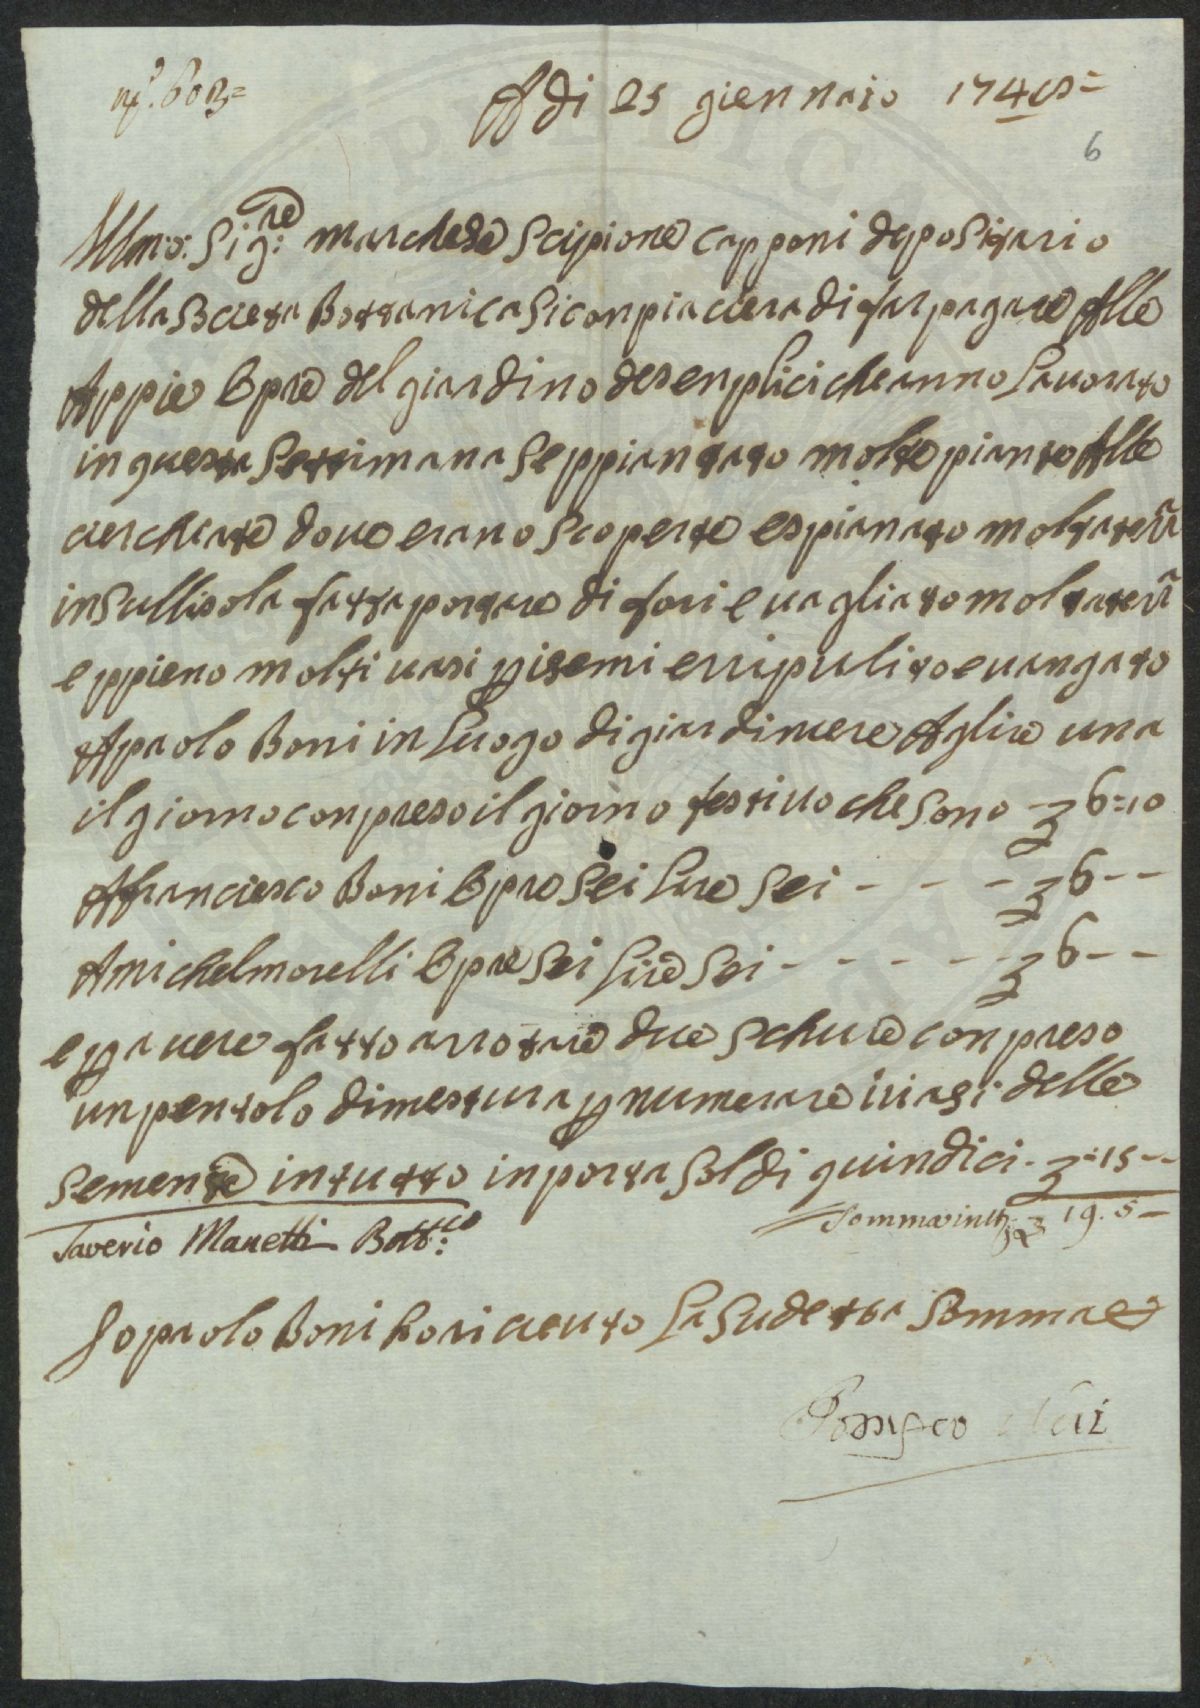 A di 25 giennaio 174
6
Illmo: Sig:re marchese Scipione capponi depositario
della Scieta Bottanica Siconpiaciera di far pagare Alle
Appie Opre del giardino desenplici che anno Lauorato
in questa Settimana Seppiantato molte piante Alle
cierchiate doue erano Scoperte espianato molta terã
in Sullisola fatta portare di fori e uagliato molta terã
e ppieno molti uasi p isemi erripulito e uangato
A paolo Boni in Luogo digiardiniere A glire una
il giorno conpreso il giorno festiuo che Sono £ 6=10
A franciesco Boni Opre Sei Lire Sei - - - £ 6 - -
A michel morelli Opre Sei Lire Sei - - - - - £ 6 - -
e p auere fatto arrotare due Schure conpreso
un pentolo dimestura p numerare iuasi delle
Semente in tutto inporta Soldi quindici - £ =15 - -
Saverio Manetti Bott:co Somma in tt° £ 19. 5 -
Io paolo Boni ho riceuto La Sudetta Somma